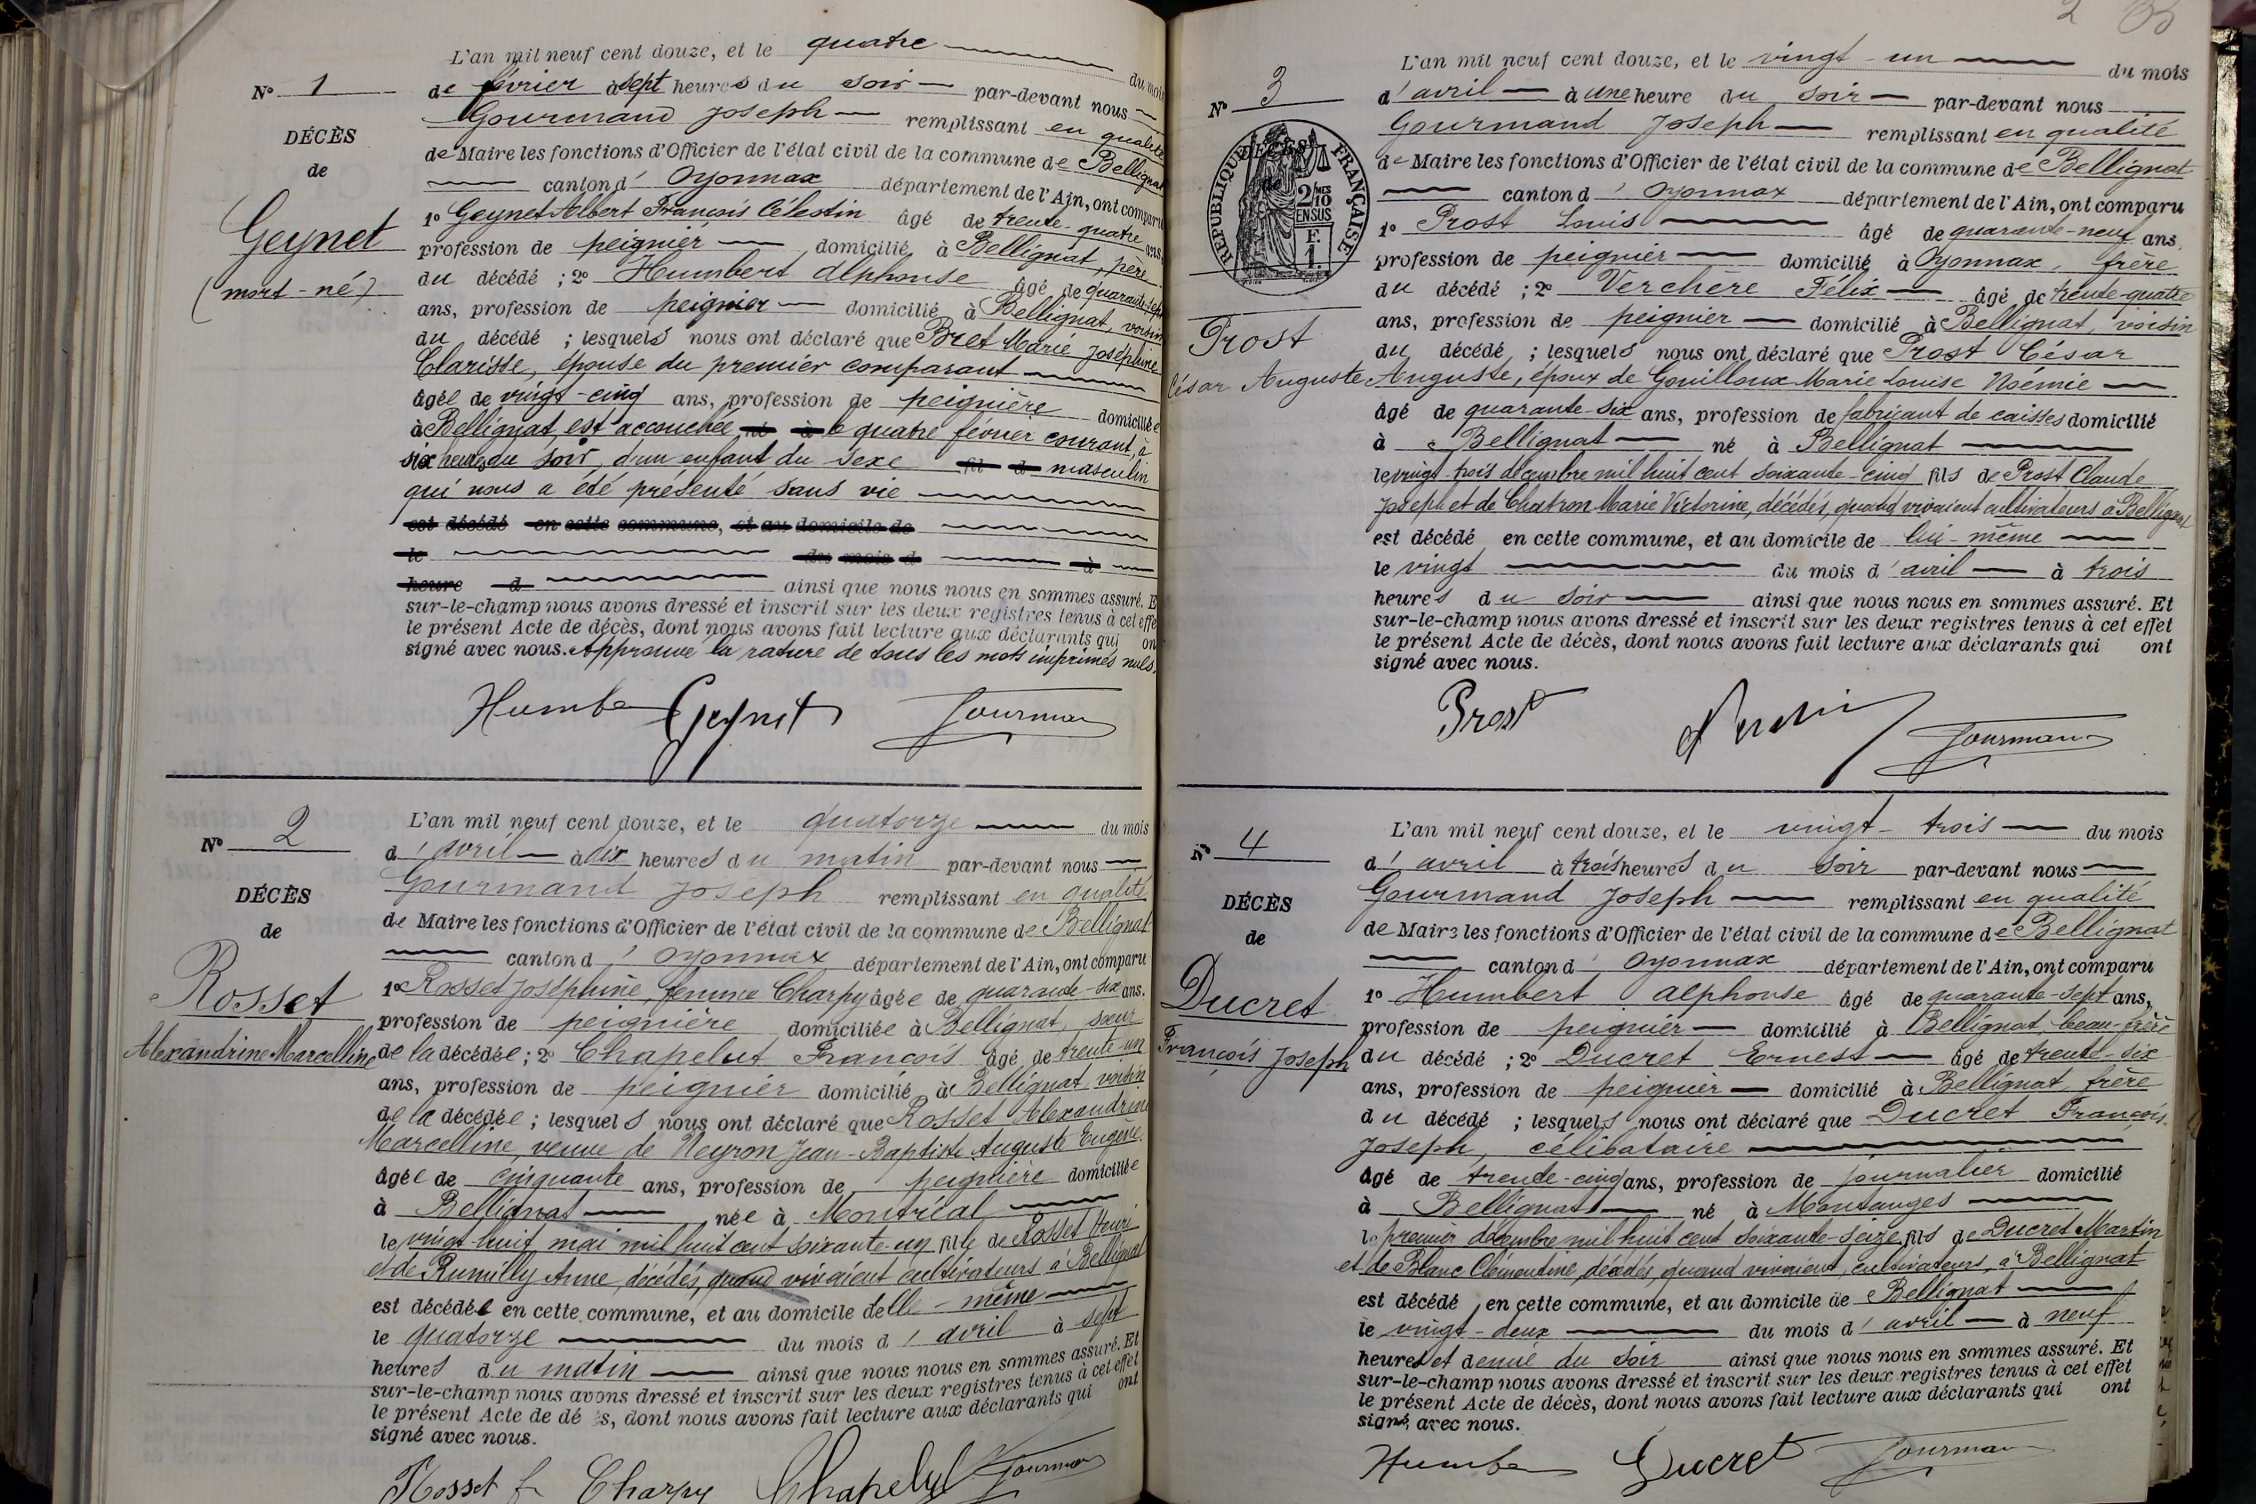 L'an mil neuf cent douze, et le quatre du mois
N° 1
de février à sept heures du soir par-devant nous
Gourmand Joseph remplissant en qualité
DÉCÈS
de Maire les fonctions d'Officier de l'état civil de la commune de Bellignat
de
canton d' Oyonnax département de l'Ain, ont comparu
1° Geynet Albert François Célestin âgé de trente-quatre ans,
Geynet
profession de peignier domicilié à Bellignat, père
du décédé ; 2° Humbert Alphonse âgé de quarante-sept
(mort-né)
ans, profession de peignier domicilié à Bellignat, voisin
du décédé ; lesquels nous ont déclaré que Bret Marie Joséphine
Clarisse, épouse du premier comparant
âgée de vingt-cinq ans, profession de peignière domiciliée
à Bellignat, est accouchée né à le quatre février courant, à
six heures du soir, d'un enfant du sexe fil d masculin
qui nous a été présenté sans vie
est décédé en cette commune, et au domicile de
le du mois d à
heure d ainsi que nous nous en sommes assuré. Et
sur-le-champ nous avons dressé et inscrit sur les deux registres tenus à cet effet
le présent Acte de décès, dont nous avons fait lecture aux déclarants qui ont
signé avec nous. Approuvé la rature de tous les mots imprimés nuls.
Humbe Geynet Gourman
N° 2
L'an mil neuf cent douze, et le quatorze du mois
d'avril à dix heures du matin par-devant nous
Gourmand Joseph remplissant en qualité
DÉCÈS
de Maire les fonctions d'Officier de l'état civil de la commune de Bellignat
de
canton d' Oyonnax département de l'Ain, ont comparu
1° Rosset Joséphine, femme Charpy âgée de quarante-six ans.
Rosset
profession de peignière domiciliée à Bellignat, sœur
Alexandrine Marcelline
de la décédée ; 2° Chapelut François âgé de trente-un
ans, profession de peignier domicilié à Bellignat, voisin
de la décédée ; lesquels nous ont déclaré que Rosset Alexandrine
Marcelline, veuve de Neyron Jean-Baptiste Auguste Eugène
âgée de cinquante ans, profession de peignière domiciliée
à Bellignat née à Montréal
le vingt-huit mai mil huit cent soixante-un fille de Rosset Henri
et de Rumilly Anne, décédés, quand vivaient cultivateurs à Bellignat
est décédée en cette commune, et au domicile d'elle-même
le quatorze du mois d'avril à sept
heures du matin ainsi que nous nous en sommes assuré. Et
sur-le-champ nous avons dressé et inscrit sur les deux registres tenus à cet effet
le présent Acte de dé s, dont nous avons fait lecture aux déclarants qui ont
signé avec nous.
Rosset f Charpy Chapelut Gourman
2
L'an mil neuf cent douze, et le vingt-un du mois
N° 3
d'avril à une heure du soir par-devant nous
Gourmand Joseph remplissant en qualité
DÉCÈS
RÉPUBLIQUE FRANÇAISE
2/10 MES EN SUS
F. 1.
de Maire les fonctions d'Officier de l'état civil de la commune de Bellignat
canton d' Oyonnax département de l'Ain, ont comparu
1° Prost Louis âgé de quarante-neuf ans,
profession de peignier domicilié à Oyonnax, frère
du décédé ; 2° Verchère Félix âgé de trente-quatre
Prost
ans, profession de peignier domicilié à Bellignat, voisin
du décédé ; lesquels nous ont déclaré que Prost César
César Auguste
Auguste, époux de Gouilloux Marie Louise Noémie
âgé de quarante-six ans, profession de fabricant de caisses domicilié
à Bellignat né à Bellignat
le vingt-trois décembre mil huit cent soixante-cinq fils de Prost Claude
Joseph et de Chatron Marie Victorine, décédés, quand vivaient cultivateurs à Bellignat
est décédé en cette commune, et au domicile de lui-même
le vingt du mois d'avril à trois
heures du soir ainsi que nous nous en sommes assuré. Et
sur-le-champ nous avons dressé et inscrit sur les deux registres tenus à cet effet
le présent Acte de décès, dont nous avons fait lecture aux déclarants qui ont
signé avec nous.
Prost Gourman
N° 4
L'an mil neuf cent douze, et le vingt-trois du mois
d'avril à trois heures du soir par-devant nous
Gourmand Joseph remplissant en qualité
DÉCÈS
de Maire les fonctions d'Officier de l'état civil de la commune de Bellignat
de
canton d' Oyonnax département de l'Ain, ont comparu
1° Humbert Alphonse âgé de quarante-sept ans,
Ducret
profession de peignier domicilié à Bellignat, beau-frère
François Joseph
du décédé ; 2° Ducret Ernest âgé de trente-six
ans, profession de peignier domicilié à Bellignat, frère
du décédé ; lesquels nous ont déclaré que Ducret François
Joseph, célibataire
âgé de trente-cinq ans, profession de journalier domicilié
à Bellignat né à Montanges
le premier décembre mil huit cent soixante-seize fils de Ducret Martin
et de Blanc Clémentine, décédés, quand vivaient, cultivateurs, à Bellignat
est décédé en cette commune, et au domicile de Bellignat
le vingt-deux du mois d'avril à neuf
heures et demie du soir ainsi que nous nous en sommes assuré. Et
sur-le-champ nous avons dressé et inscrit sur les deux registres tenus à cet effet
le présent Acte de décès, dont nous avons fait lecture aux déclarants qui ont
signé avec nous.
Humbe Ducret Gourman